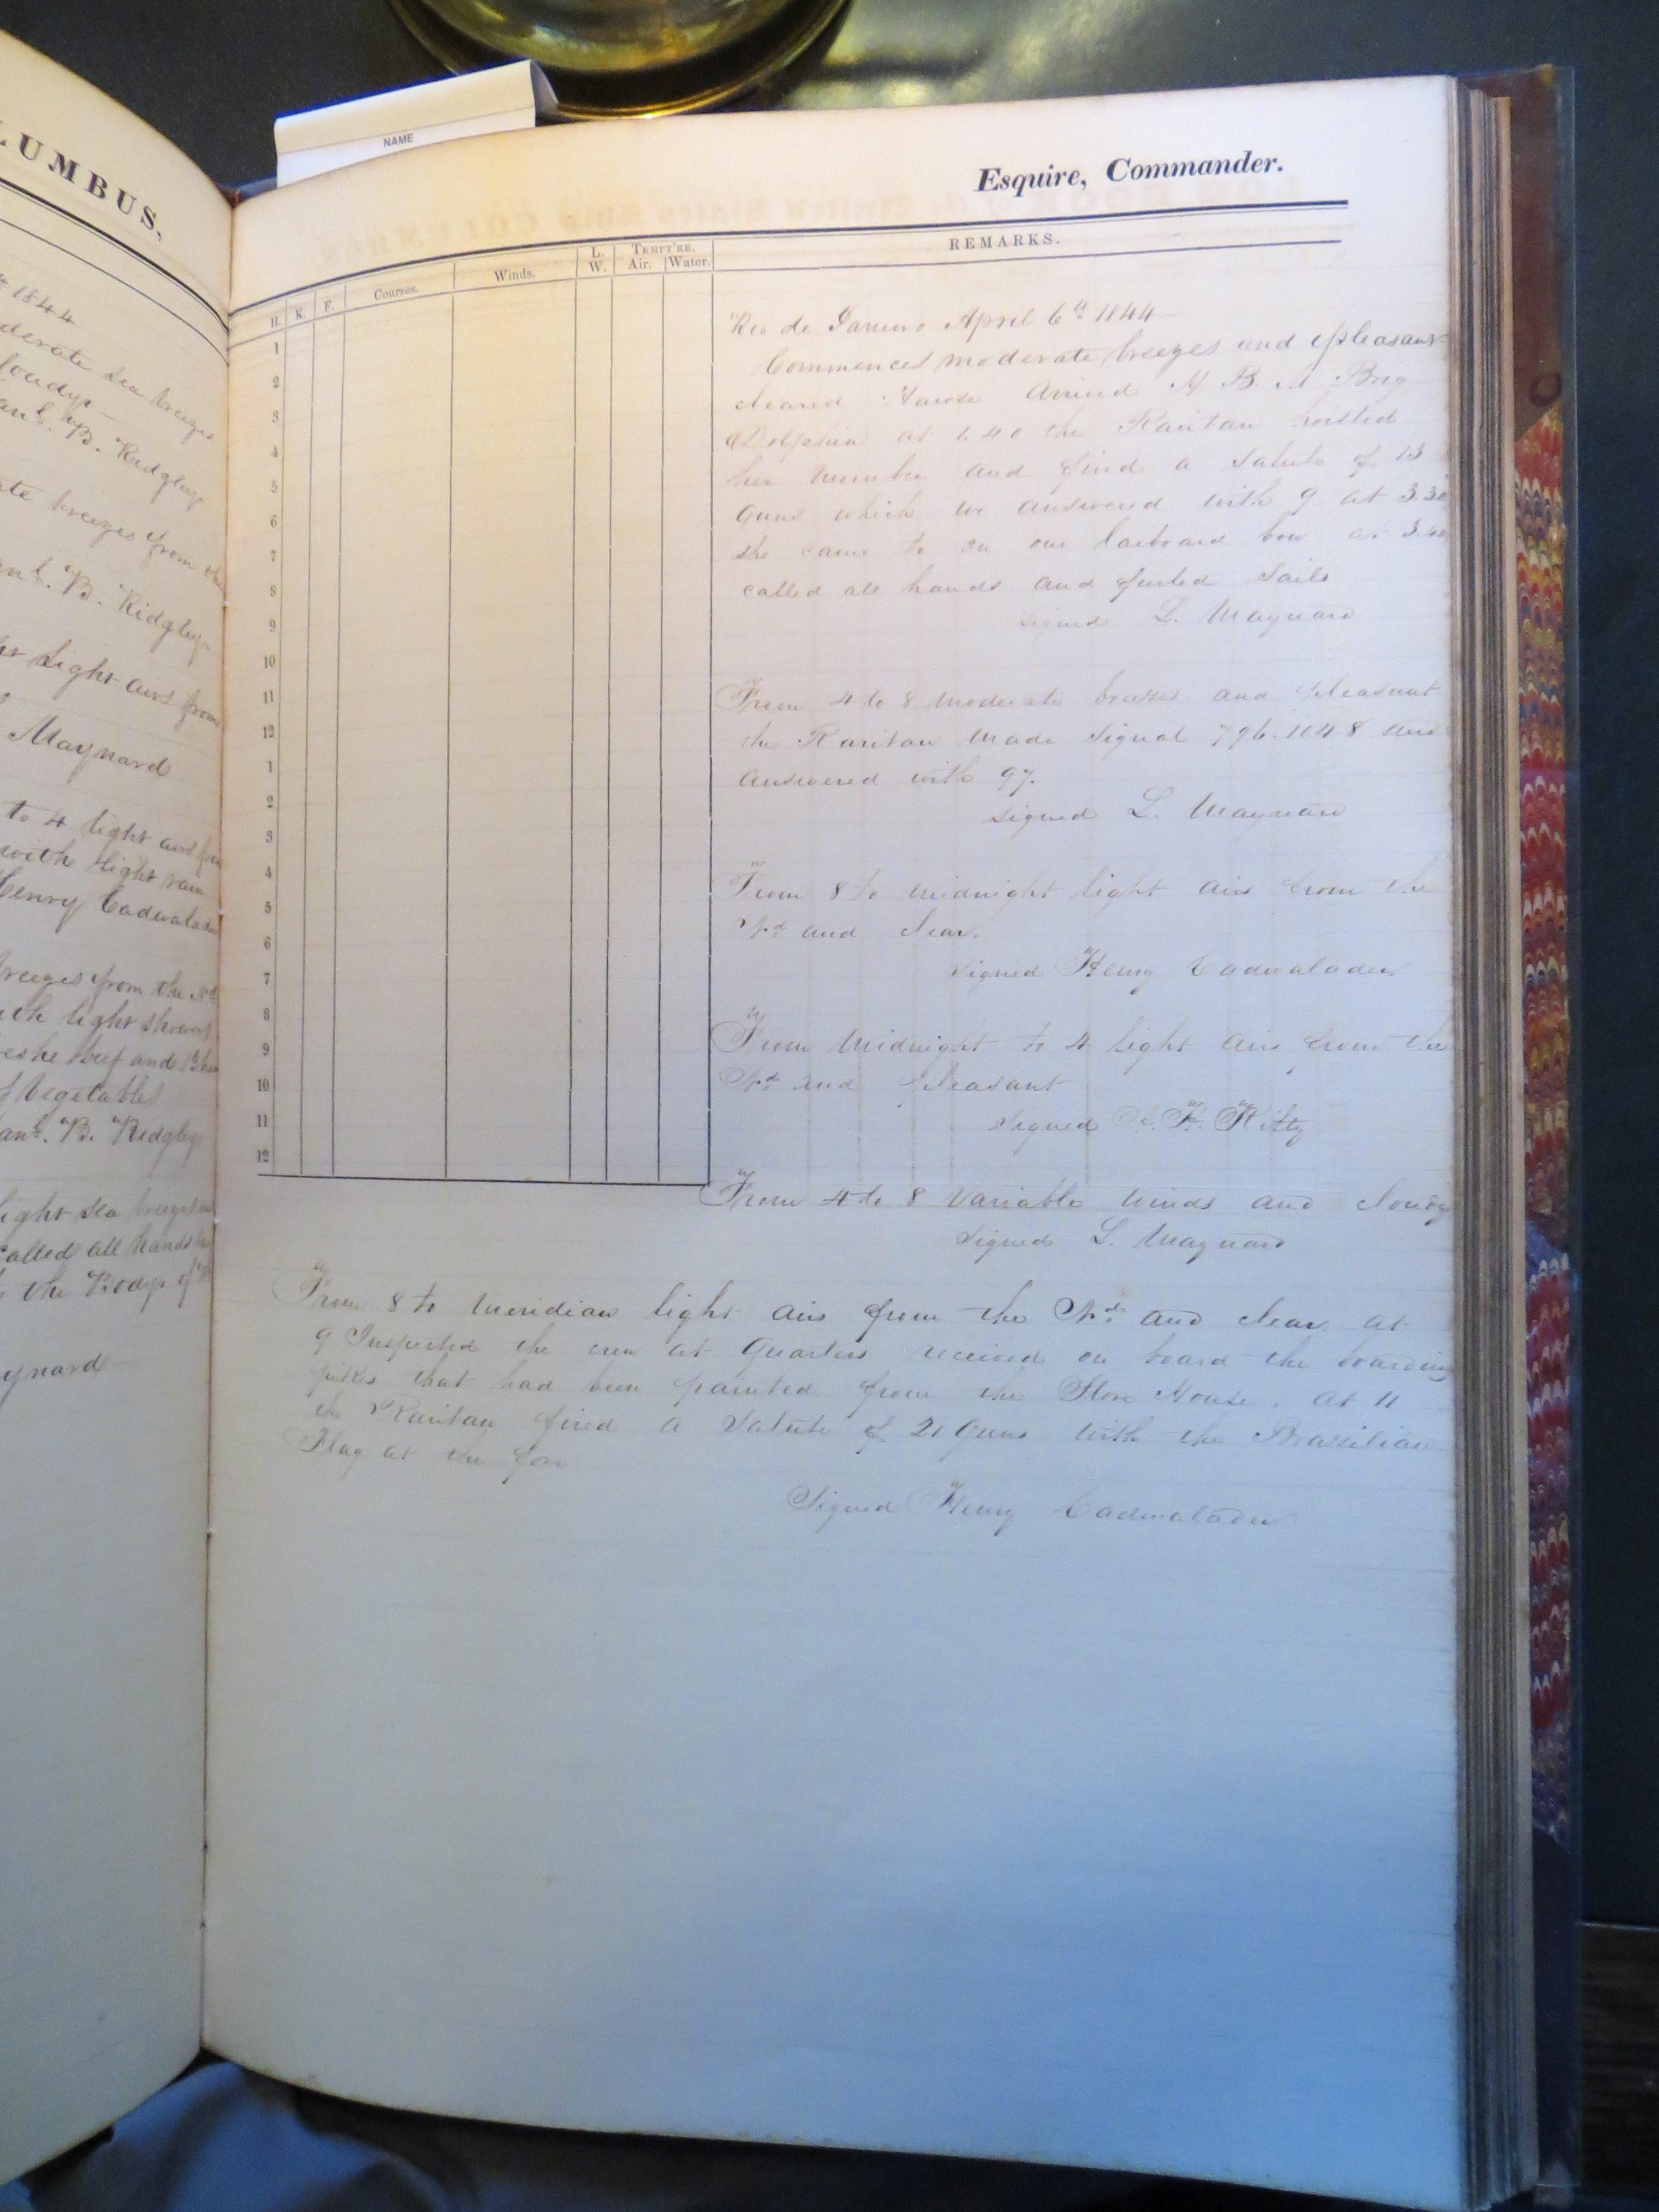 LUMBUS,
1844
derate sea breezes
loudy
B. Ridgley
breezes from the
B. Ridgley
light airs from
Maynard
to 4 light airs from
with light rain
Henry Cadwalader
breezes from the Nd
light showers
beef and
of vegetables
B. Ridgley
light sea breezes
called all hands
the Body of
ynard
NAME
Esquire, Commander.
H. K. F. Courses. Winds. L. W. TEMPT'RE. Air. Water. REMARKS.
1
2
3
4
5
6
7
8
9
10
11
12
1
2
3
4
5
6
7
8
9
10
11
12
Rio de Janeiro April 6th 1844
Commences moderate breezes and pleasant
cleared Hawse Arrived H B M Brig
Dolphin at 1.40 the Raritan hoisted
her number and fired a salute of 13
Guns which we answered with 9 at 3.30
she came to on our larboard bow at 3.40
called all hands and furled sails
signed L. Maynard
From 4 to 8 moderate breezes and pleasant
the Raritan made signal 796.1148 and
answered with 97.
signed L. Maynard
From 8 to midnight light airs from the
Nd and clear.
signed Henry Cadwalader
From Midnight to 4 light airs from the
Nd and pleasant
signed
From 4 to 8 variable winds and cloudy
signed L. Maynard
From 8 to Meridian light airs from the Nd and clear. at
9 Inspected the crew at Quarters received on board the boarding
pikes that had been painted from the Store House. at 11
the Raritan fired a salute of 21 Guns with the Brazilian
Flag at the fore
Signed Henry Cadwalader